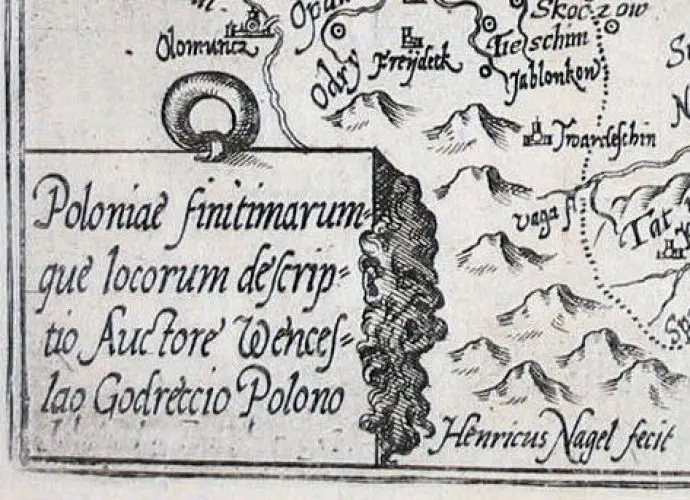 Opun
Skoczow
Olomuncz
Odry
Freÿdeck
Tieschim
Jablonkow
Twardeschin
vaga fl
Tat
Sp
Poloniae finitimarum-
que locorum descrip-
tio Auctore Wences-
lao Godreccio Polono
Henricus Nagel fecit